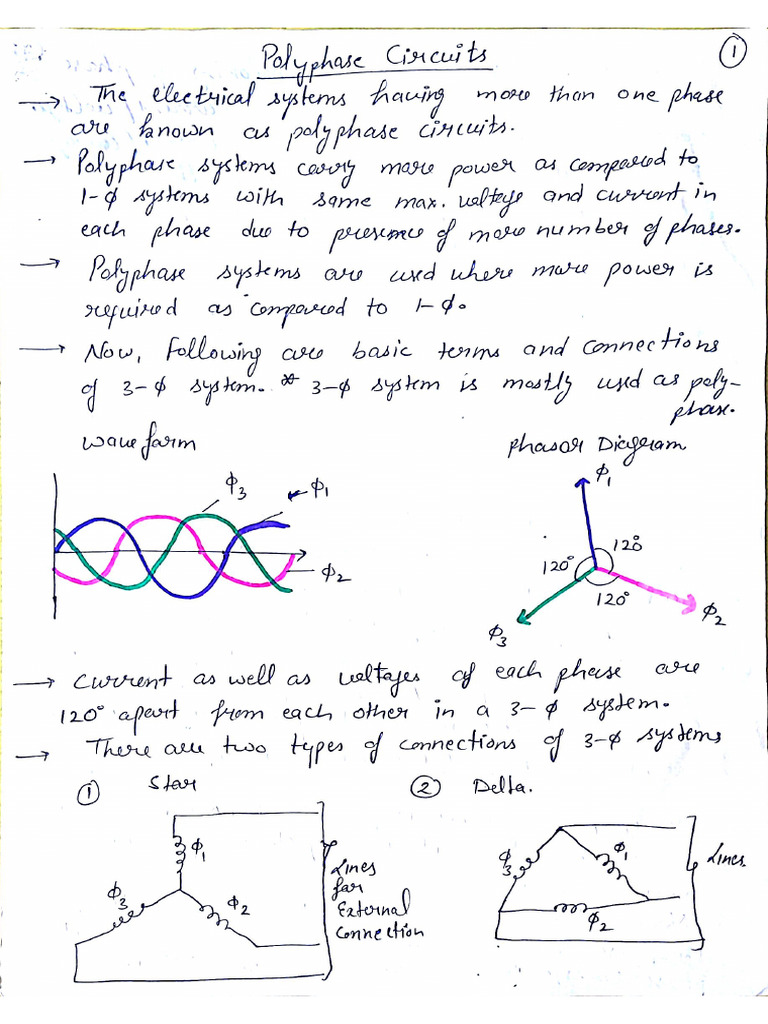 Polyphase Circuits
①
→ The electrical systems having more than one phase
are known as polyphase circuits.
→ Polyphase systems carry more power as compared to
1-φ systems with same max. voltage and current in
each phase due to presence of more number of phases.
→ Polyphase systems are used where more power is
required as compared to 1-φ.
→ Now, following are basic terms and connections
of 3-φ system. * 3-φ system is mostly used as poly-
phase.
waveform
Phasor Diagram
φ3
φ1
φ2
φ1
120°
120°
120°
φ2
φ3
→ Current as well as voltages of each phase are
120° apart from each other in a 3-φ system.
→ There are two types of connections of 3-φ systems
① Star
② Delta.
φ1
φ3
φ2
Lines
for
External
Connection
φ3
φ1
φ2
Lines.